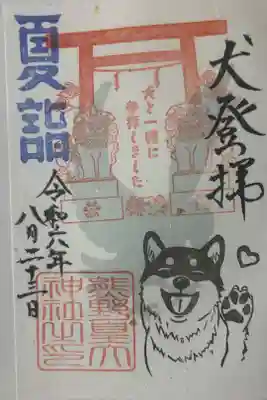 犬登拝
犬と一緒に
参拝しました
夏詣
令和六年
八月二十二日
熊野皇大
神社之印